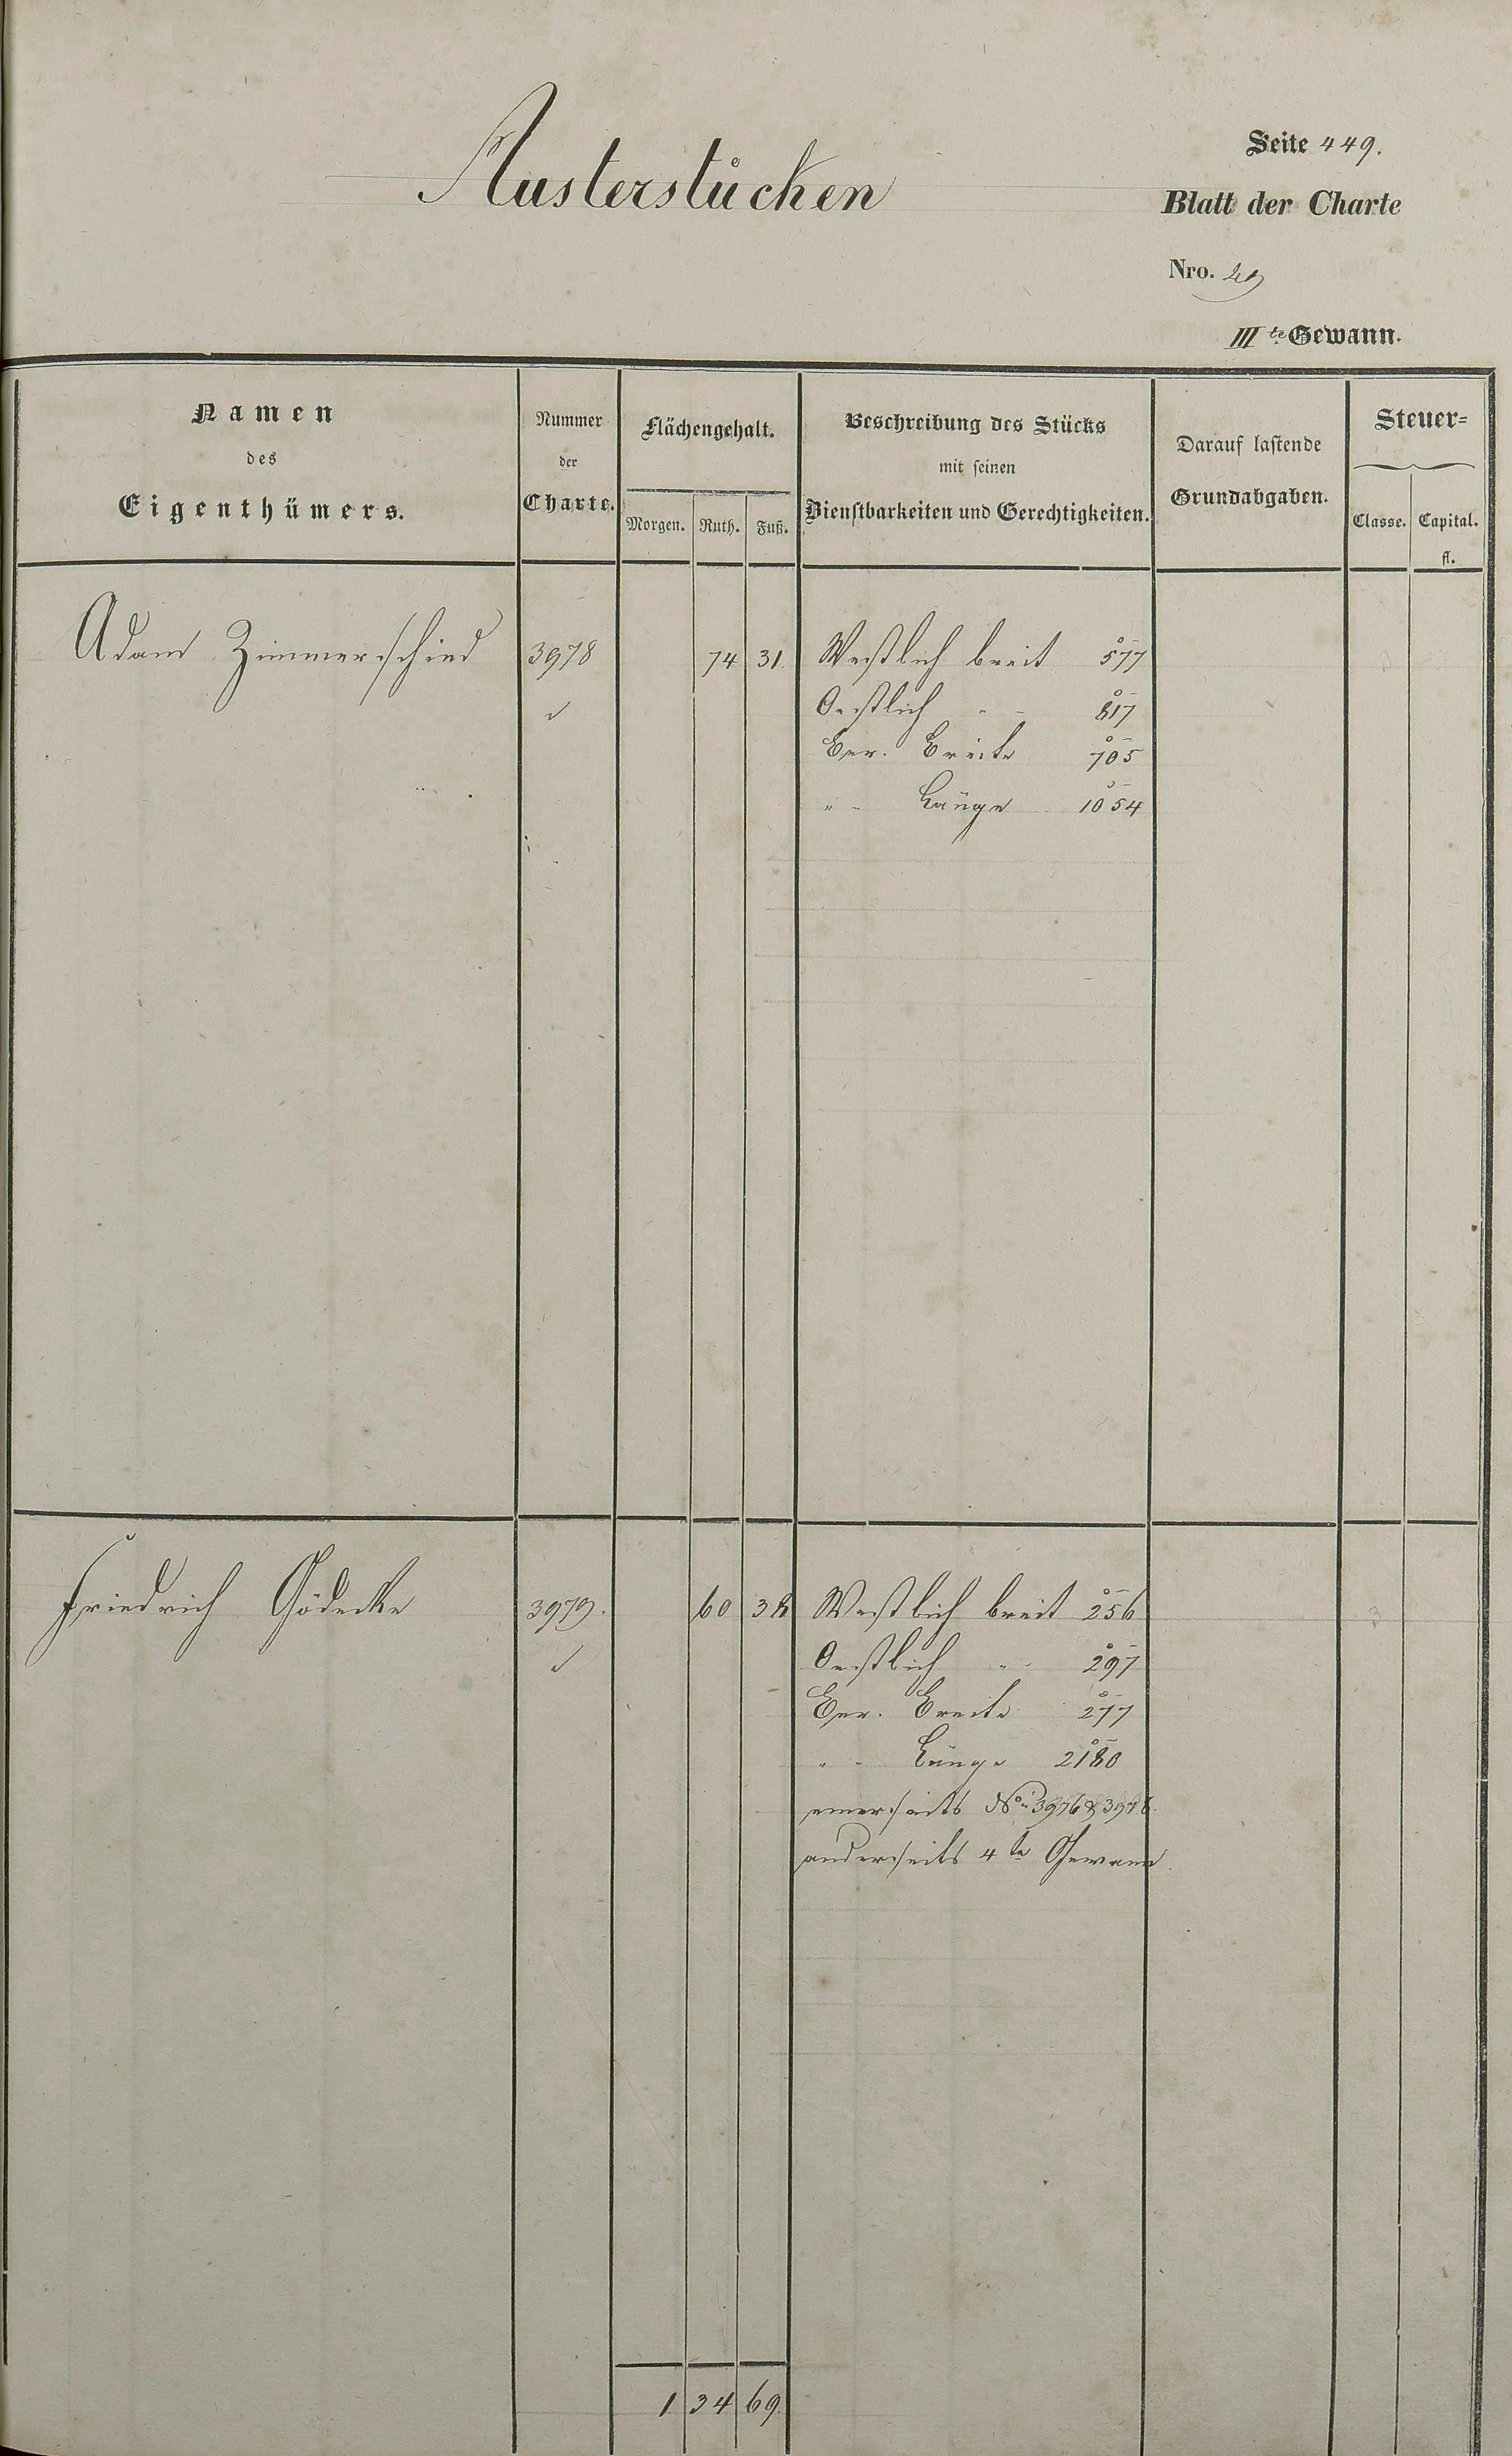 Austerstücken
Seite 449.
Blatt der Charte
Nro. 29
III te Gewann.
Namen
des
Eigenthümers.
Nummer
der
Charte.
Flächengehalt.
Morgen. Ruth. Fuß.
Beschreibung des Stücks
mit seinen
Dienstbarkeiten und Gerechtigkeiten.
Darauf lastende
Grundabgaben.
Steuer=
Classe. Capital.
fl.
Adam Zimmerschied 3978 74 31 Westlich breit 577
Oestlich " - 817
Ber. Breite 705
" - Länge 1054
Friedrich Gödecke 3979. 60 38 Westlich breit 256
Oestlich " - 297
Ber. Breite 277
" - Länge 2180
einerseits No 3976 & 3978.
anderseits 4te Gewann.
1 34 69.